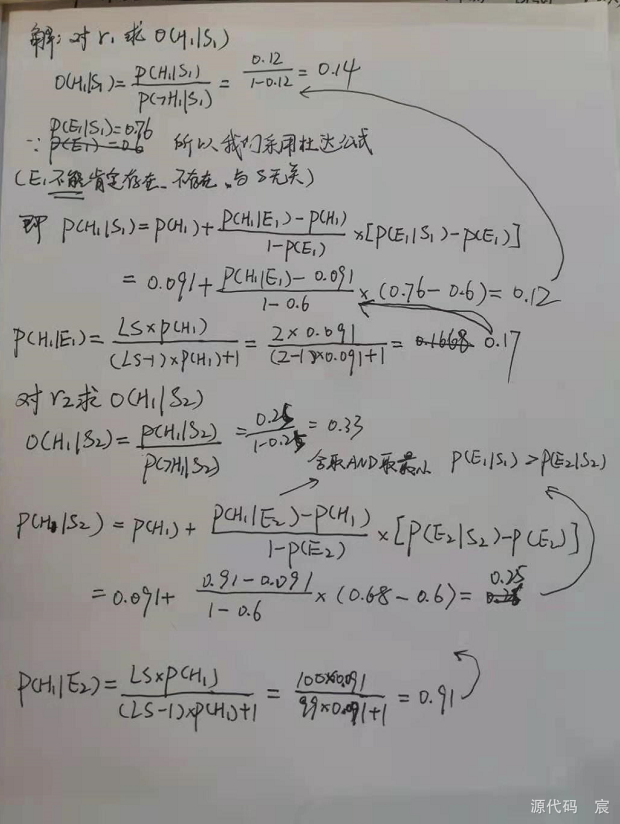 解: 对 r₁ 求 O(H₁|S₁)
O(H₁|S₁) = P(H₁|S₁) / P(¬H₁|S₁) = 0.12 / 1-0.12 = 0.14
P(E₁|S₁)=0.76
∵ P(E₁)=0.6 所以我们采用杜达公式
(E₁不能肯定存在、不存在、与S无关)
即 P(H₁|S₁) = P(H₁) + P(H₁|E₁) - P(H₁) / 1-P(E₁) × [P(E₁|S₁) - P(E₁)]
= 0.091 + P(H₁|E₁) - 0.091 / 1-0.6 × (0.76-0.6) = 0.12
P(H₁|E₁) = LS×P(H₁) / (LS-1)×P(H₁)+1 = 2×0.091 / (2-1)×0.091+1 = 0.1668 0.17
对 r₂ 求 O(H₁|S₂)
O(H₁|S₂) = P(H₁|S₂) / P(¬H₁|S₂) = 0.25 / 1-0.25 = 0.33
合取AND取最小 P(E₁|S₁) > P(E₂|S₂)
P(H₁|S₂) = P(H₁) + P(H₁|E₂) - P(H₁) / 1-P(E₂) × [P(E₂|S₂) - P(E₂)]
= 0.091 + 0.91-0.091 / 1-0.6 × (0.68-0.6) = 0.25
P(H₁|E₂) = LS×P(H₁) / (LS-1)×P(H₁)+1 = 100×0.091 / 99×0.091+1 = 0.91
源代码 宸